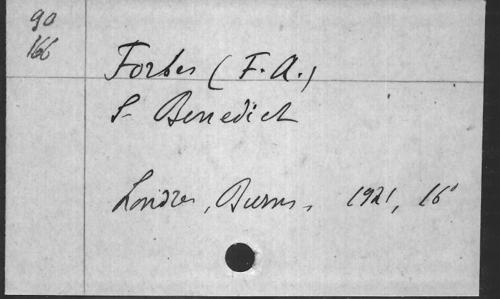 90
166
Forbes (F. A.)
S- Benedict
Londres, Burns, 1921, 16°